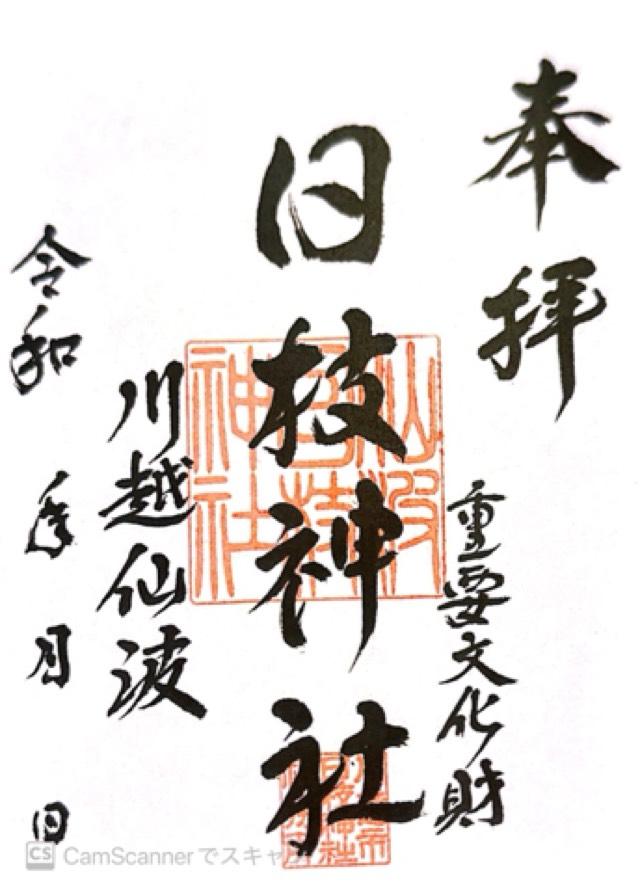 奉拝
重要文化財
日枝神社
仙波
日枝
神社
川越仙波
令和 年 月 日
CS CamScannerでスキャン